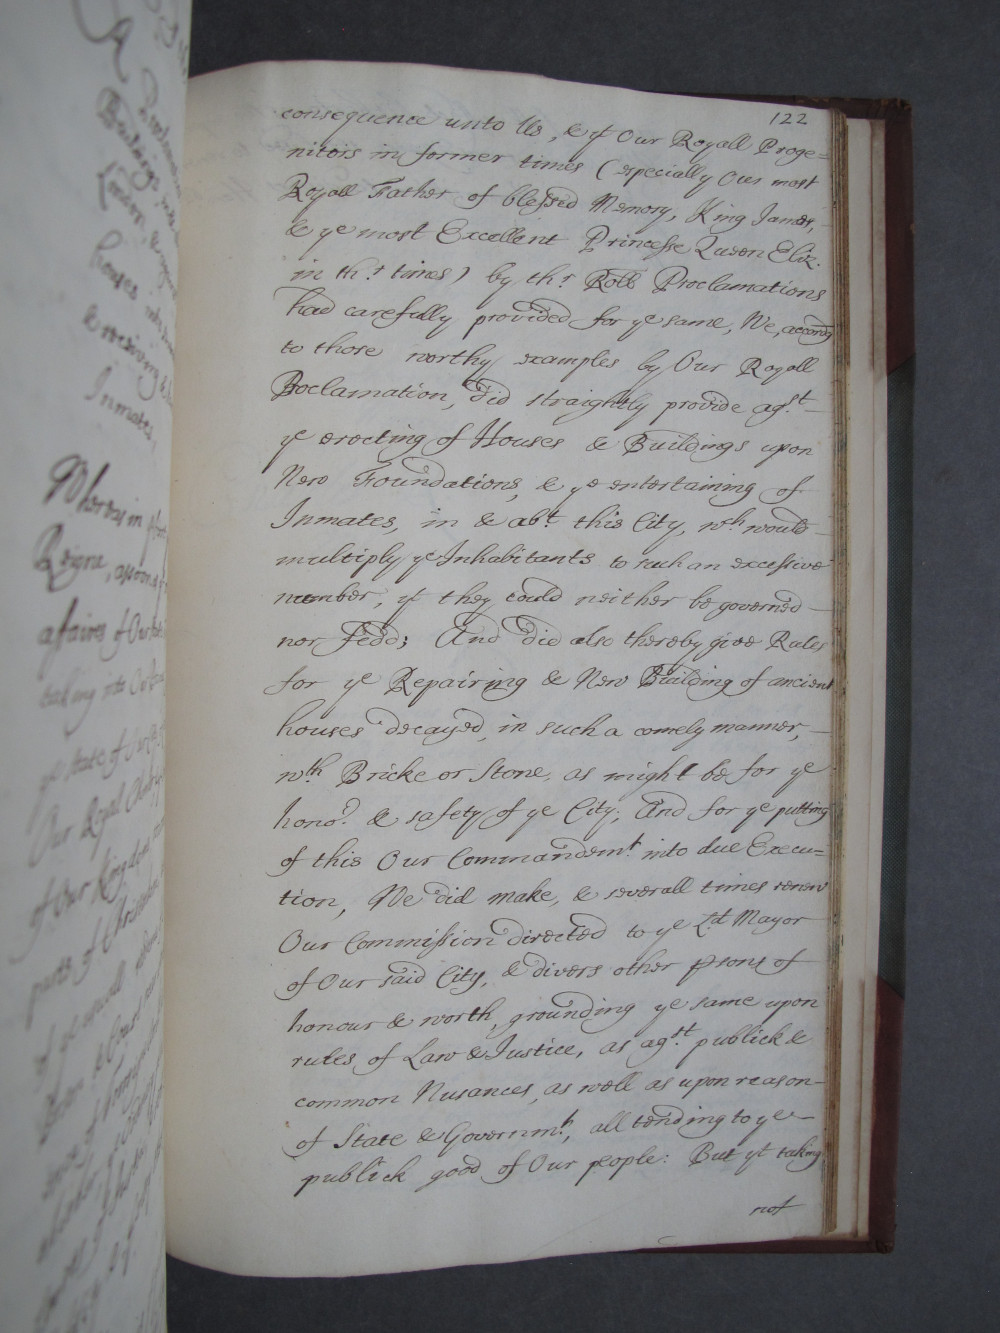 A
Buildings
London &
houses
& receiving
Inmates,
Whereas in
Reigne, assoone
afaires of Our
taking into
ye state of
Our Royal
of Our Kingdom
parts of
122
consequence unto Us, & yt Our Royall Proge=
nitors in former times (especially Our most
Royall Father of blessed Memory, King James,
& ye most Excellent Princesse Queen Eliz.
in thr times) by thr Roll Proclamations
had carefully provided for ye same, We, accordg
to those worthy examples by Our Royall
Proclamation, did straightly provide agst
ye erecting of Houses & Buildings upon
New Foundations, & ye entertaining of
Inmates, in & abt this City, wh would
multiply ye Inhabitants to such an excessive
number, yt they could neither be governed
nor fedd; And did also thereby give Rules
for ye Repairing & New Building of ancient
houses decayed, in such a comely manner,
wth Bricke or Stone, as might be for ye
honor & safety of ye City; And for ye putting
of this Our Commandemt into due Execu=
tion, We did make, & severall times renew
Our Commission directed to ye Ld Mayor
of Our said City, & divers other psons of
honour & worth, grounding ye same upon
rules of Law & Justice, as agst publick &
common Nusances, as well as upon reason
of State & Governmt, all tending to ye
publick good of Our people: But yt taking
not